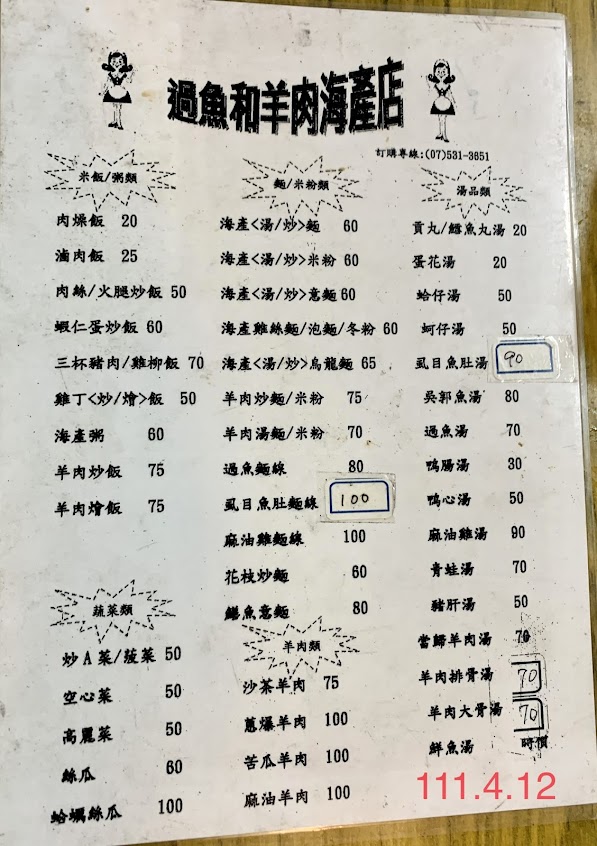 過魚和羊肉海產店
訂購專線:(07)531-3651
米飯/粥類
肉燥飯 20
滷肉飯 25
肉絲/火腿炒飯 50
蝦仁蛋炒飯 60
三杯豬肉/雞柳飯 70
雞丁<炒/燴>飯 50
海產粥 60
羊肉炒飯 75
羊肉燴飯 75
蔬菜類
炒A菜/菠菜 50
空心菜 50
高麗菜 50
絲瓜 60
蛤蠣絲瓜 100
麵/米粉類
海產<湯/炒>麵 60
海產<湯/炒>米粉 60
海產<湯/炒>意麵 60
海產雞絲麵/泡麵/冬粉 60
海產<湯/炒>烏龍麵 65
羊肉炒麵/米粉 75
羊肉湯麵/米粉 70
過魚麵線 80
虱目魚肚麵線 100
麻油雞麵線 100
花枝炒麵 60
鱔魚意麵 80
羊肉類
沙茶羊肉 75
蔥爆羊肉 100
苦瓜羊肉 100
麻油羊肉 100
湯品類
貢丸/鱈魚丸湯 20
蛋花湯 20
蛤仔湯 50
蚵仔湯 50
虱目魚肚湯 90
吳郭魚湯 80
過魚湯 70
鴨腸湯 30
鴨心湯 50
麻油雞湯 90
青蛙湯 70
豬肝湯 50
當歸羊肉湯 70
羊肉排骨湯 70
羊肉大骨湯 70
鮮魚湯 時價
111.4.12